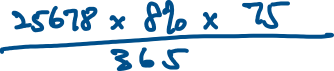 25678 x 8% x 75
365